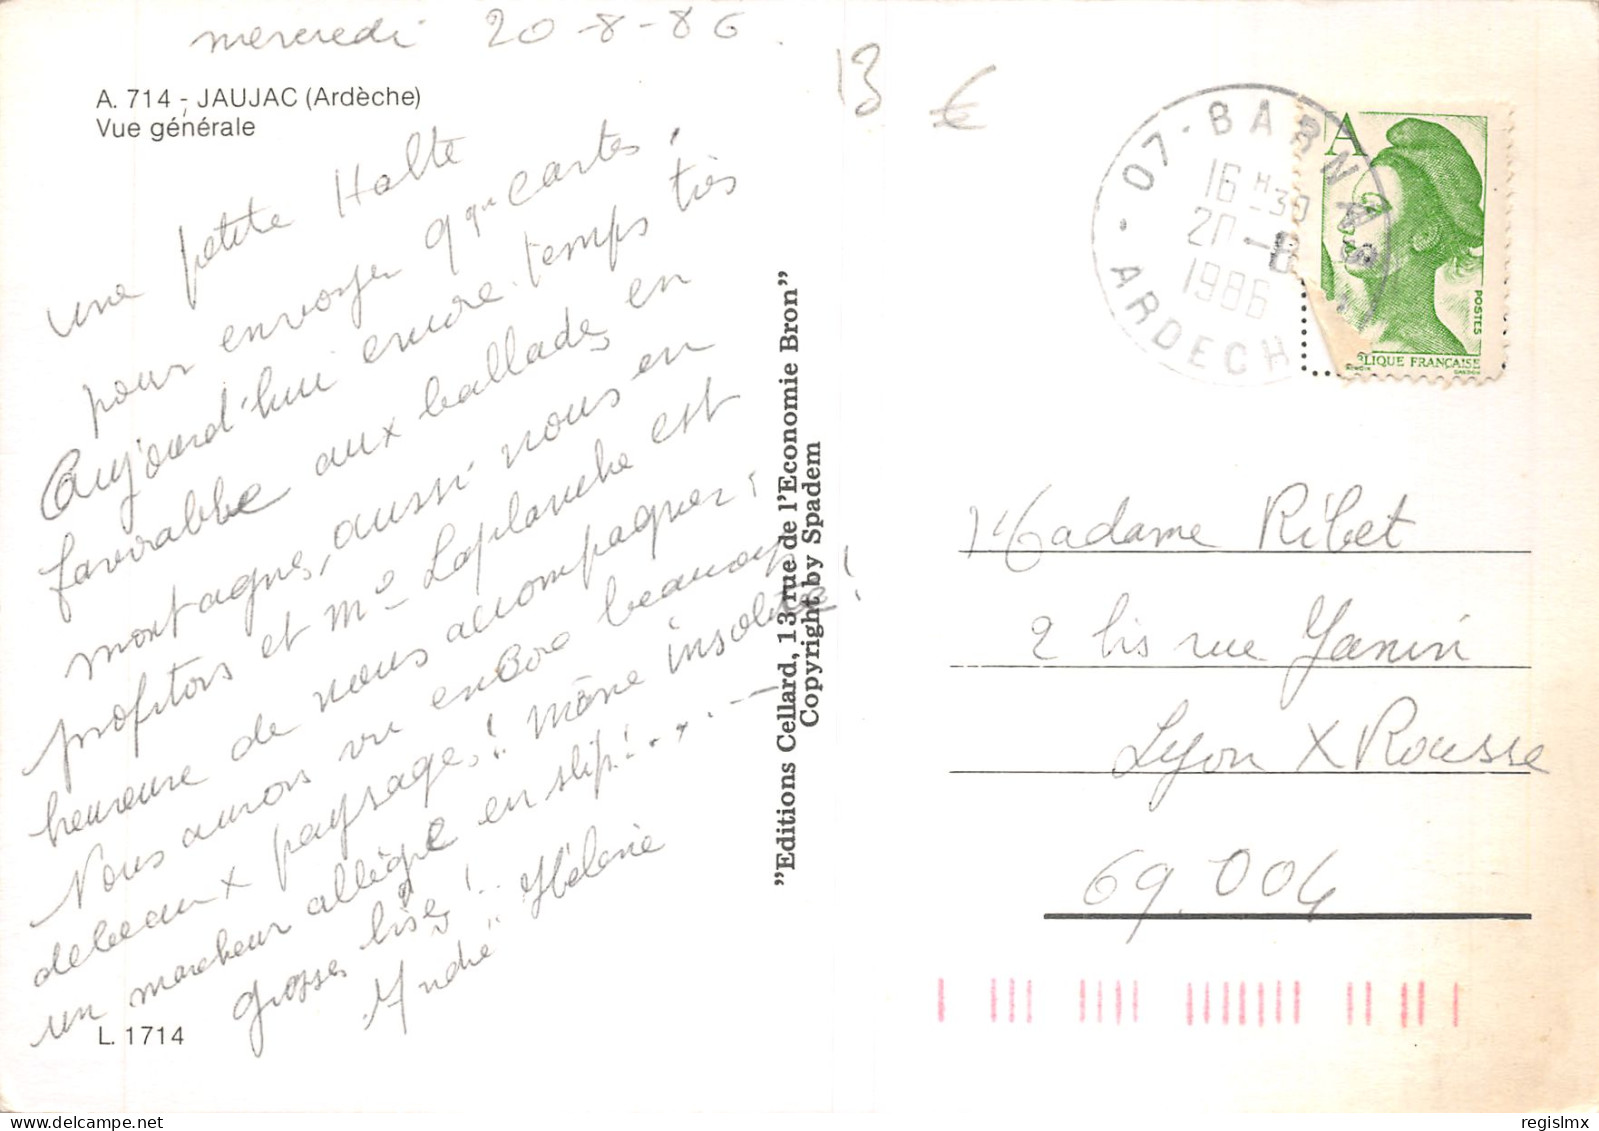 mercredi 20-8-86.
A. 714 - JAUJAC (Ardèche)
Vue générale
une petite Halte
pour envoyer qques cartes,
Aujourd'hui encore temps très
favorable aux ballades en
montagnes, aussi nous en
profitons et Me Laplanche est
heureuse de nous accompagner!
Nous avons vu encore beaucoup
de beaux paysages! même insolite!
un marcheur allègre en slip!....
grosses bises!..
André Hélène
L. 1714
"Editions Cellard, 13 rue de l'Economie Bron"
Copyright by Spadem
13 €
07 - BARNAS
16 H30
20 -8
1986
ARDECH
A
POSTES
BLIQUE FRANÇAISE
GANDON
Madame Ribet
2 bis rue Janin
Lyon X Rousse
69.004
regislmx